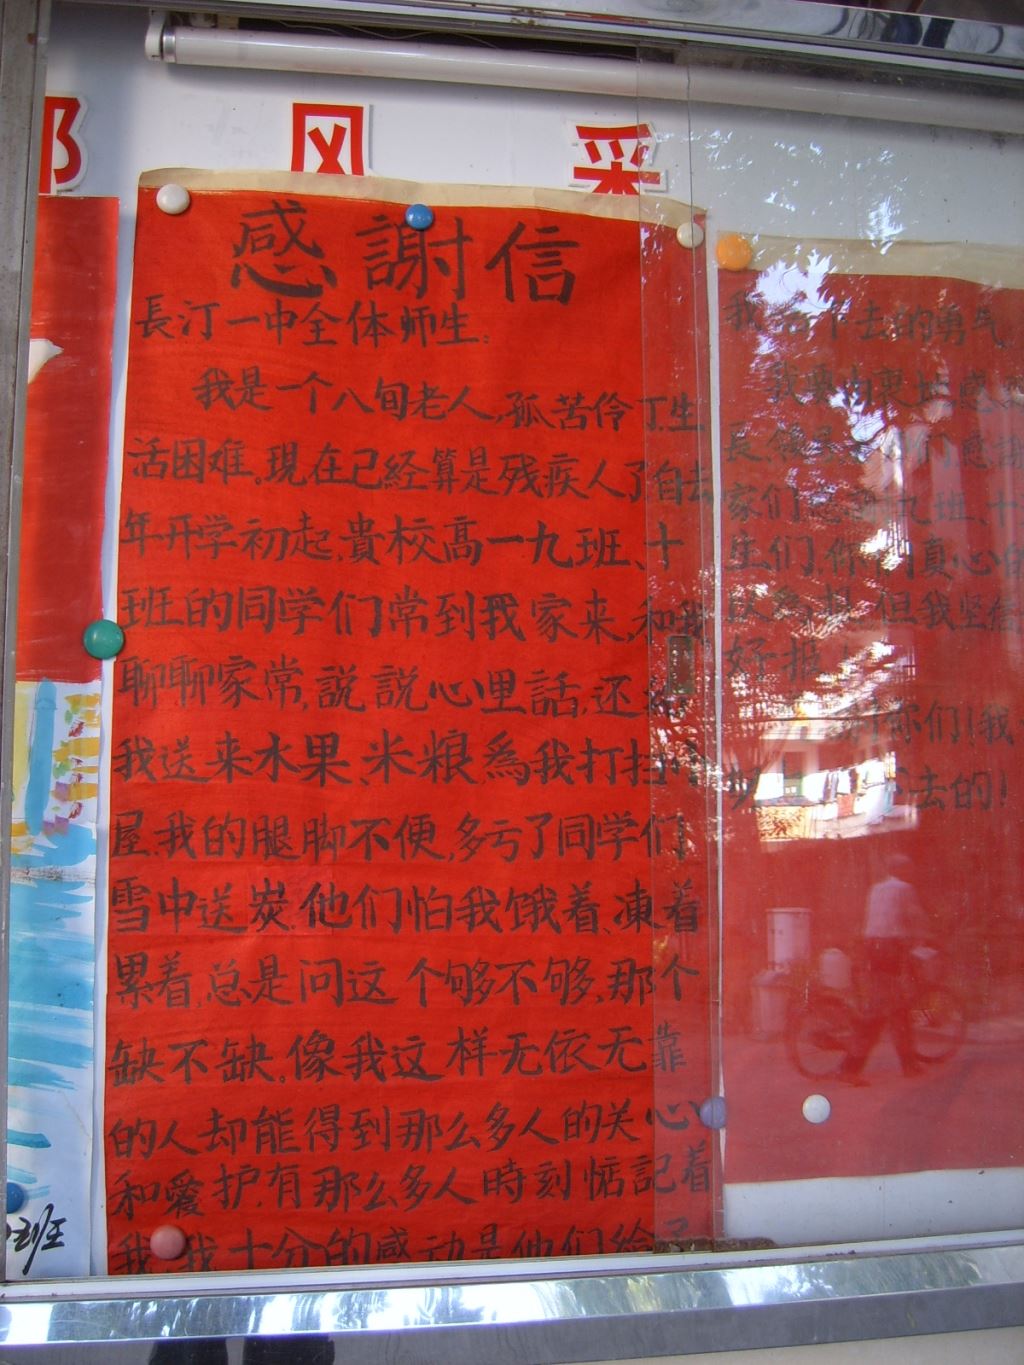 风采
感謝信
長汀一中全体师生:
我是一个八旬老人,孤苦伶丁,生
活困难。現在已經算是残疾人了自去
年开学初起,貴校高一九班、十
班的同学们常到我家来,和我
聊聊家常,説説心里話,还給
我送来水果、米粮,為我打扫
屋.我的腿脚不便,多亏了同学们
雪中送炭.他们怕我饿着、凍着
累着,总是问这个够不够,那个
缺不缺。像我这样无依无靠
的人却能得到那么多人的关心
和愛护.有那么多人時刻惦記着
我,我十分的感动是他们给了
我 个去的勇气
我要由衷地感
長、 们,感謝
家们 九班、十
生们,你们真心
但我坚信
好报
你们!我
去的!
班